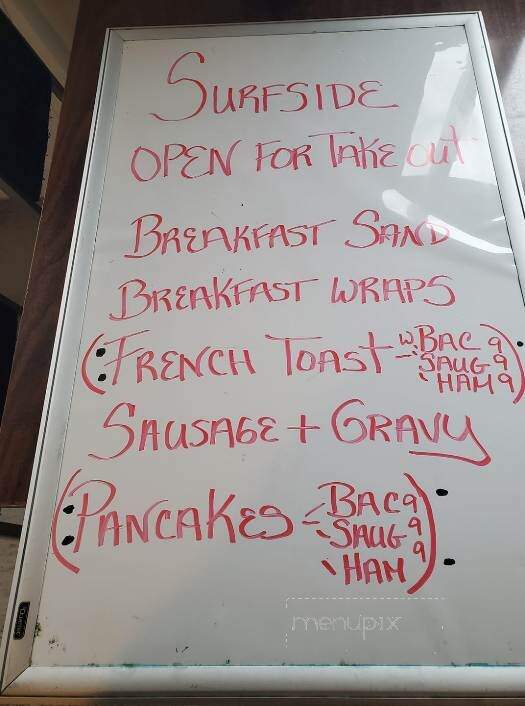 SURFSIDE
OPEN FOR TAKE OUT
BREAKFAST SAND
BREAKFAST WRAPS
(:FRENCH TOAST - W. BAC 9
SAUG 9
HAM 9):
SAUSAGE + GRAVY
(:PANCAKES - BAC 9
SAUG 9
HAM 9):
menupix